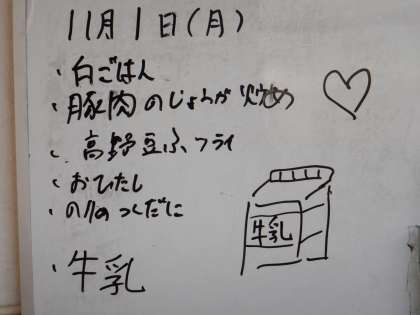 11月1日(月)
・白ごはん
・豚肉のじょうが炒め
・高野豆ふフライ
・おひたし
・のりのつくだに
・牛乳
牛乳